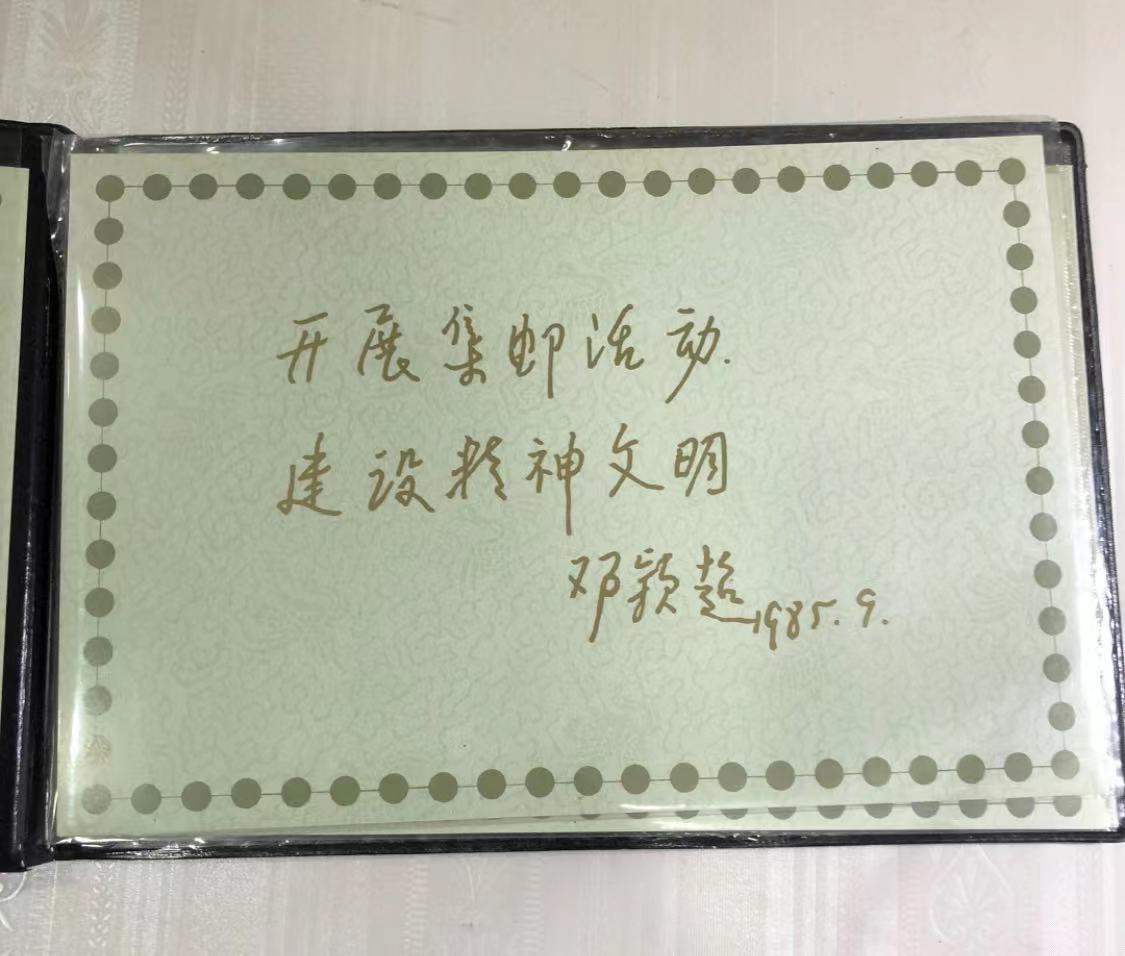 开展集邮活动.
建设精神文明
邓颖超 1985.9.